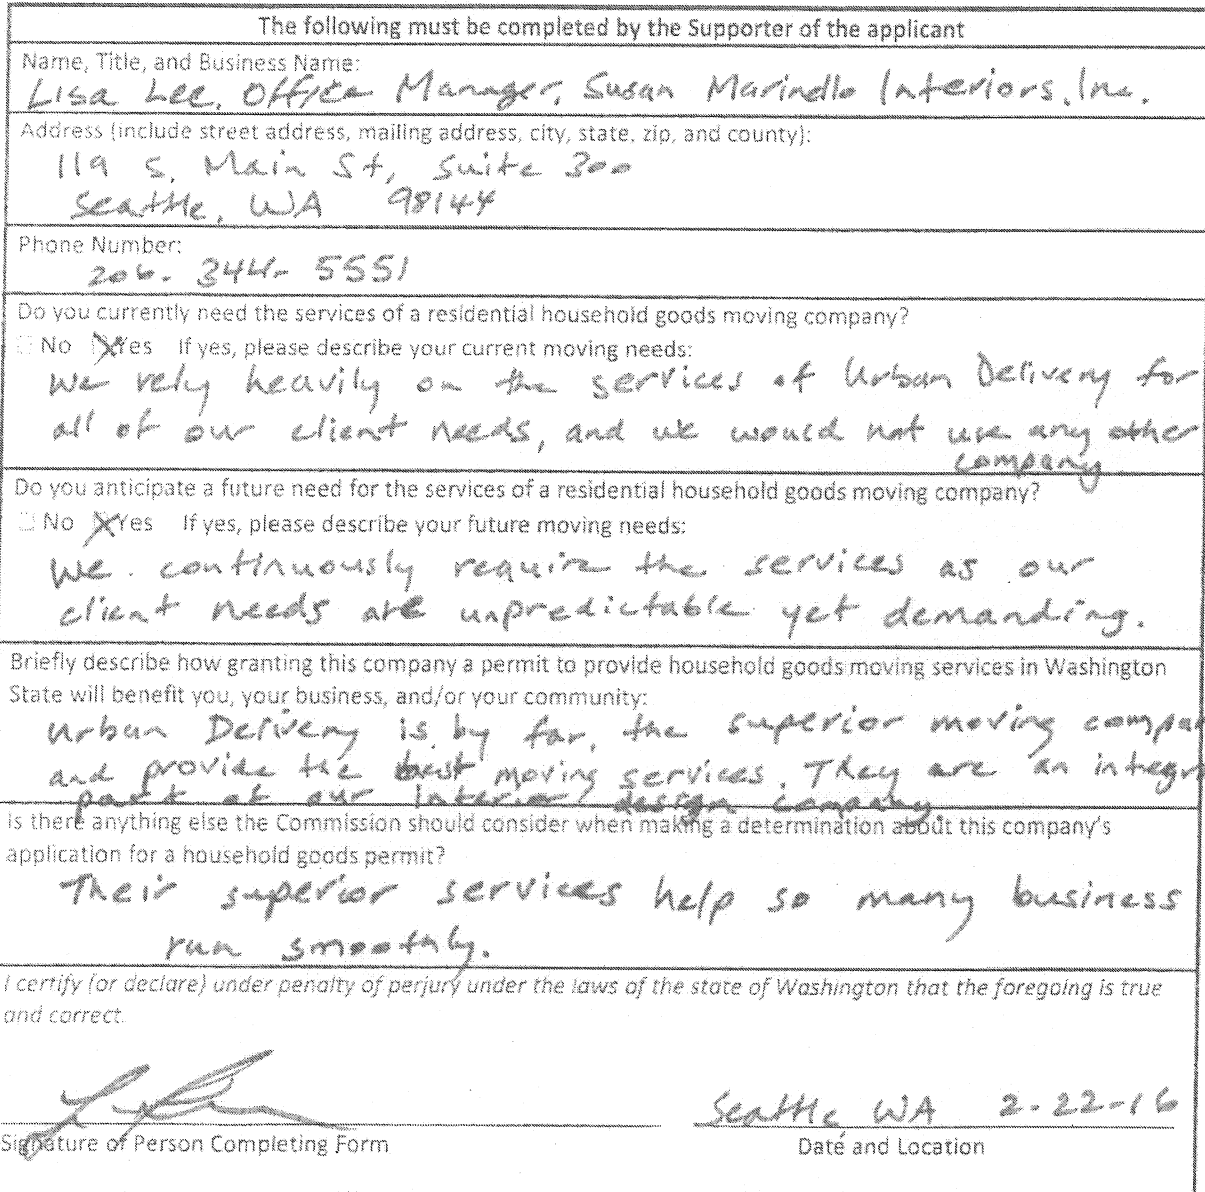 The following must be completed by the Supporter of the applicant
Name, Title, and Business Name:
Lisa Lee, Office Manager, Susan Marinello Interiors, Inc.
Address (include street address, mailing address, city, state, zip, and county):
119 S. Main St, Suite 300
Seattle, WA 98144
Phone Number:
206. 344- 5551
Do you currently need the services of a residential household goods moving company?
No Yes If yes, please describe your current moving needs:
We rely heavily on the services of Urban Delivery for
all of our client needs, and we would not use any other
company
Do you anticipate a future need for the services of a residential household goods moving company?
No Yes If yes, please describe your future moving needs:
We continuously require the services as our
client needs are unpredictable yet demanding.
Briefly describe how granting this company a permit to provide household goods moving services in Washington
State will benefit you, your business, and/or your community:
Urban Delivery is by far, the superior moving compa
and provide the best moving services. They are an integr
part of our interior design company.
Is there anything else the Commission should consider when making a determination about this company's
application for a household goods permit?
Their superior services help so many business
run smoothly.
I certify (or declare) under penalty of perjury under the laws of the state of Washington that the foregoing is true
and correct.
Seattle WA 2-22-16
Signature of Person Completing Form Date and Location